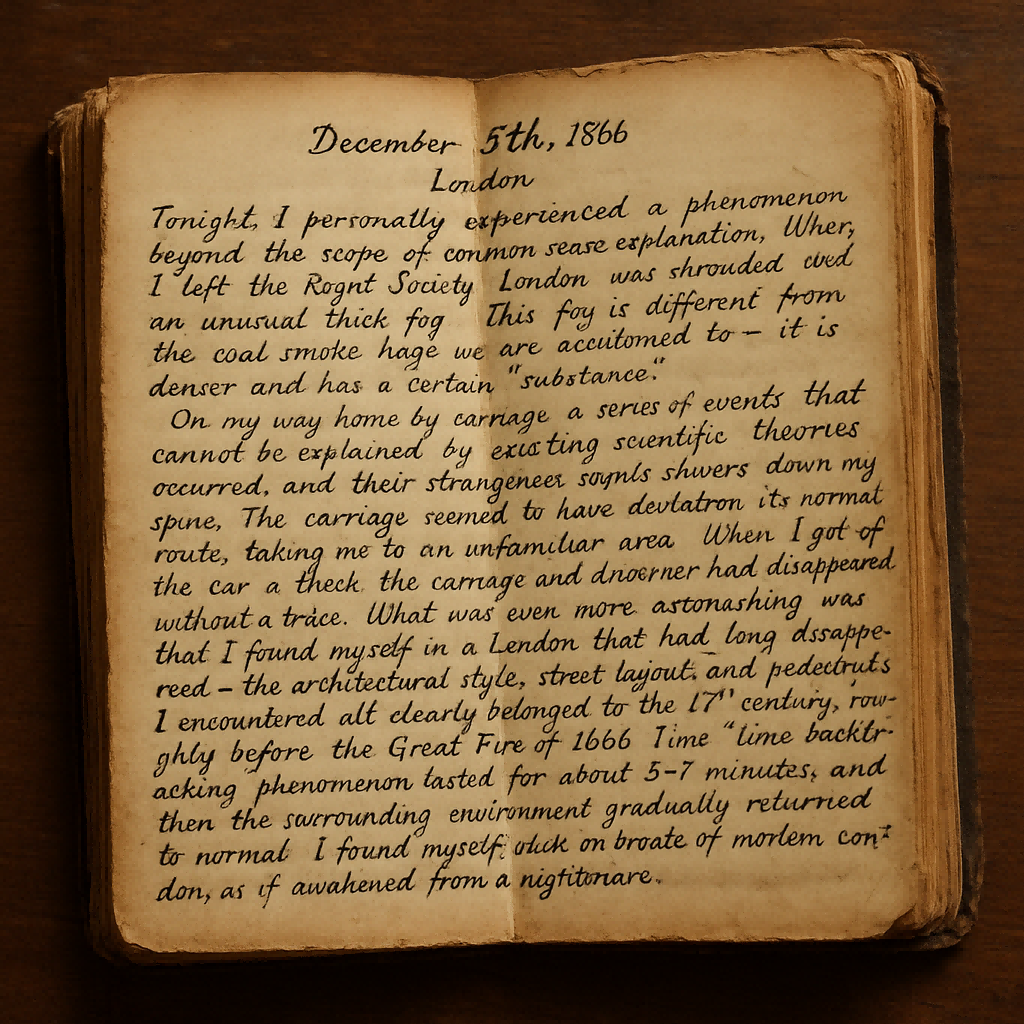 December 5th, 1866
London
Tonight, I personally experienced a phenomenon
beyond the scope of conmon sease explanation, Wher,
I left the Rognt Society London was shrouded cved
an unusual thick fog This foy is different from
the coal smoke hage we are accuitomed to – it is
denser and has a certain "substance."
On my way home by carriage a series of events that
cannot be explained by existing scientific theories
occurred, and their strangeneer soynls shwers down my
spine, The carriage seemed to have devlatron its normal
route, taking me to an unfamiliar area When I got of
the car a theck the carnage and dnoerner had disappeared
without a trace. What was even more astonashing was
that I found myself in a Lendon that had long dssappe-
reed – the architectural style, street layout. and pedectruts
I encountered alt clearly belonged to the 17" century, row-
ghly before the Great Fire of 1666 Time "lime backtr-
acking phenomenon tasted for about 5-7 minutes, and
then the sarrounding environment gradually returried
to normal I found myself; on broate of morlem con-
don, as if awahened from a nigtitonare.